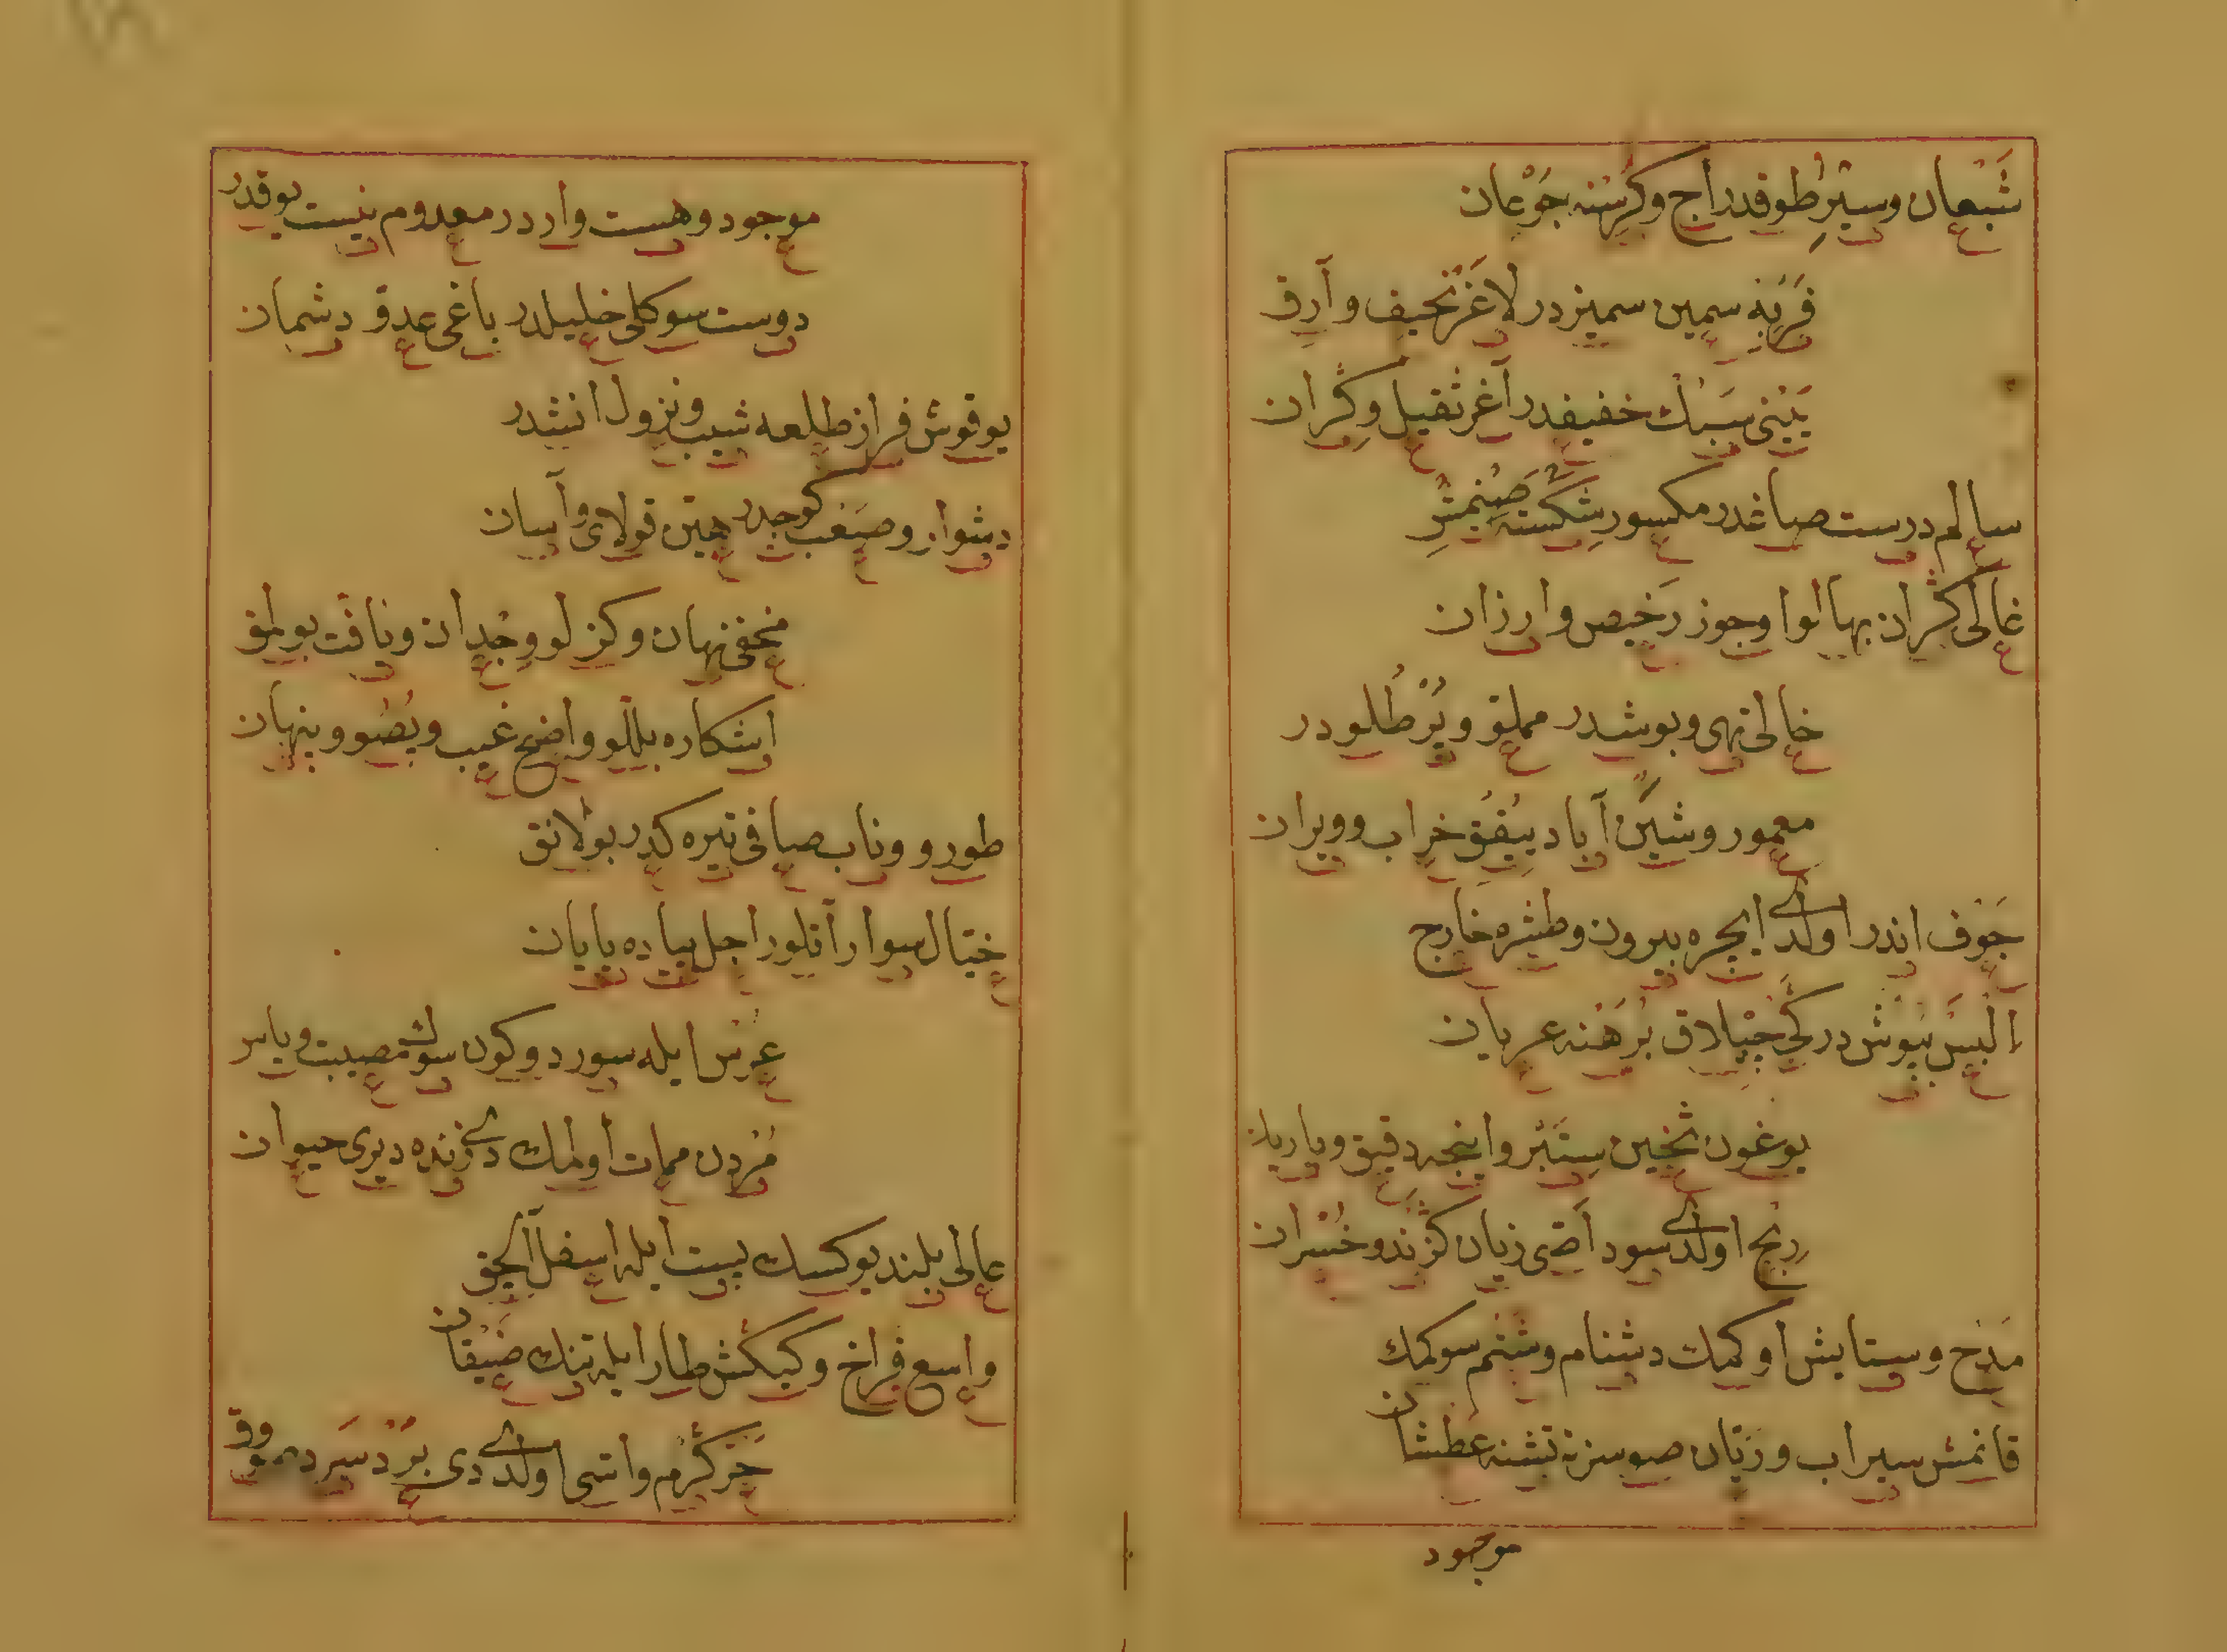 شَبْعان وسيْرِ طوقدر اج وكُرْسْنه جَوْعان
فَرْبَهِ سمِين سميزدر لاغَرْ نحيف وآرِق
يَيْنى سَبُك خفيفدر آغر ثقيل وكِران
سالم درست صاغدر مكسور شِكَسْته صِنِمِشْ
غالى كران بها لوا وجوز رَخيص وارزان
خالى تهى وبوشدر مملو وپُرْ طُلودر
معمور وشين آباد ييقُق خراب وويران
جَوْف اندر اولدى ايچره بيرون وطشره خارج
اَلْبَسْ پُيوُش دركى چپلاق بُرَهْنه عريان
يوغون ثخين سِتَبْر واينجه دقيق وباريك
ربح اولدى سود آصى زيان كزند وخُسْران
مَدْح وستايش اوكمك دشنام وشتم سوكمك
قانمش سيراب وريّان صوسز تشنه عَطْشان
موجود
موجود وهست واردر معدوم نيست يوقدر
دوست سوكلى خليلدر ياغى عدوّ دشمان
يوقوش فراز طلعه شيب ونزول انشدر
دشوار وصَعْب كوجدر هيّن قولاى وآسان
مخفى نهان وكزلو وِجْدان ويافت بولمق
اشكاره بللو واضح غيب ويُصُو وپنهان
طورو وناب صافى تيره كدِر بولانق
خيّال سوار آتلو راجل پياده يايان
عُرْس ايله سور دوكون سوك مصيبت وياس
مُرْدن ممات اولمك دخى زنده ديرى حيوان
عالى بلند يوكسك پست ايله اسفل آلچق
واسع فراخ وكيكش طار ايله تنك ضَيْقان
حَرّ كَرْم واسى اولدى دى بَرْد سَرد صوق